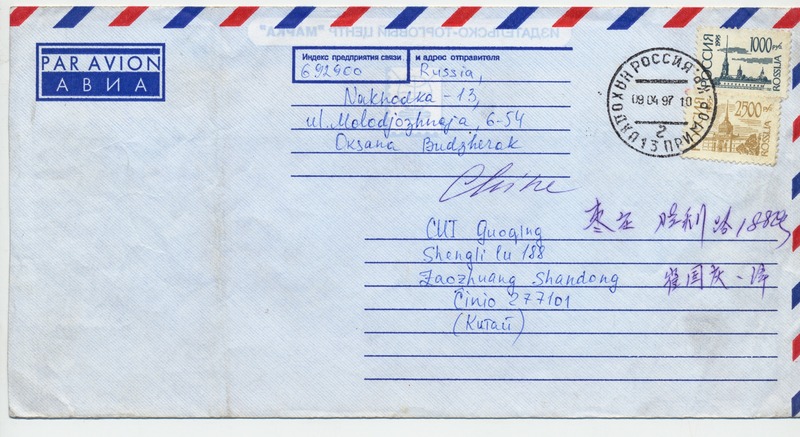 ИЗДАТЕЛЬСКО-ТОРГОВЫЙ ЦЕНТР "МАРКА"
PAR AVION
АВИА
Индекс предприятия связи и адрес отправителя
692900 Russia,
Nakhodka - 13,
ul. Molodjozhnaja, 6-54
Oksana Budzherak
РОССИЯ 1995
1000 руб.
ROSSIJA
2500 руб.
ROSSIJA
РОССИЯ
НАХОДКА 13 ПРИМОР.
09 04 97 10
2
Chine
CUI Guoqing
Shengli lu 188
Zaozhuang Shandong
Cinio 277101
(Китай)
枣庄 胜利路 188号
崔国庆 - 译